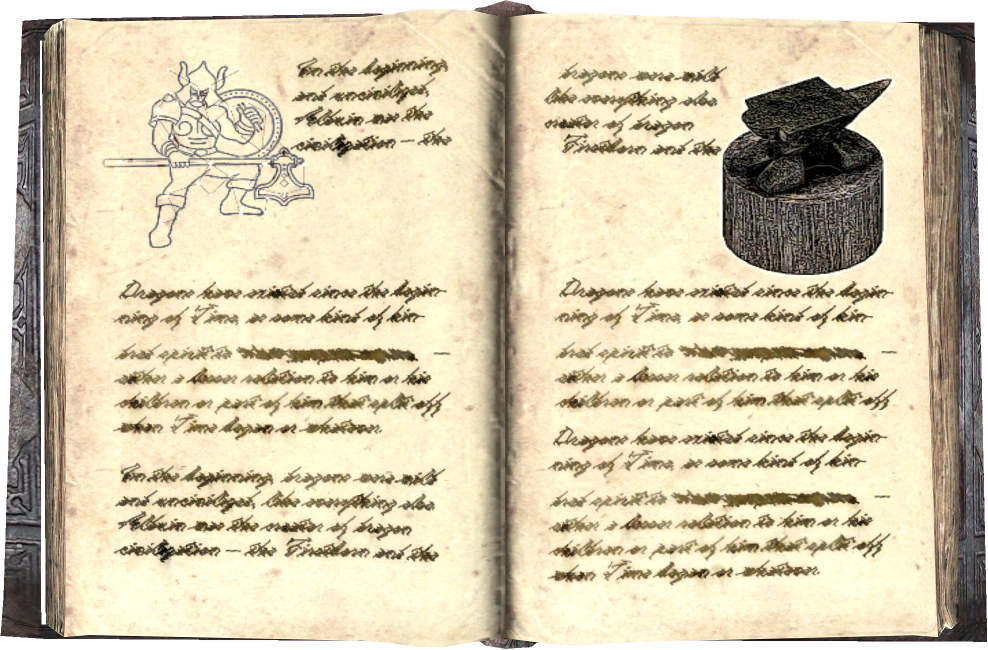 In the beginning,
and uncivilized,
Alduin was the
civilization — the
Dragons have existed since the begin-
ning of Time, as some kind of kin-
dred spirit to —
either a lesser relation to him or his
children or part of him that split off
when Time began or whatever.
In the beginning, dragons were wild
and uncivilized, like everything else
Alduin was the creator of dragon
civilization — the Firstborn and the
dragons were wild
like everything else
creator of dragon
Firstborn and the
Dragons have existed since the begin-
ning of Time, as some kind of kin-
dred spirit to —
either a lesser relation to him or his
children or part of him that split off
Dragons have existed since the begin-
ning of Time, as some kind of kin-
dred spirit to —
either a lesser relation to him or his
children or part of him that split off
when Time began or whatever.